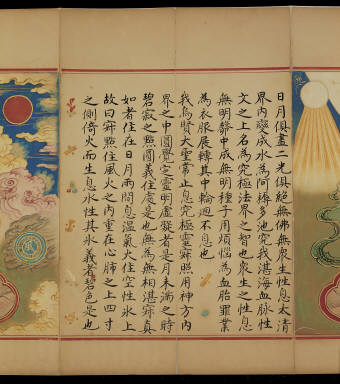 日月俱盡二光俱絕無佛無衆生性息太清
界內變成水為阿耨多池究我湛海血脉性
文之上名為究極法界之智也衆生之性息
無明藏中成無明種子用煩惱為血胎罪業
為衣服展轉其中輪迴不息也
我為賢大聖常止息究極靈寂照用神方內
界之中圓覺定靈明虛凝者是月未滿之時
碧寂之照圓義住處是也無為無相湛寂真
如者住在日月兩間息溫氣火住空性水上
故曰寂照住風火之內重在心肺之上四寸
之側倚火而生息水性其水義者碧色是也